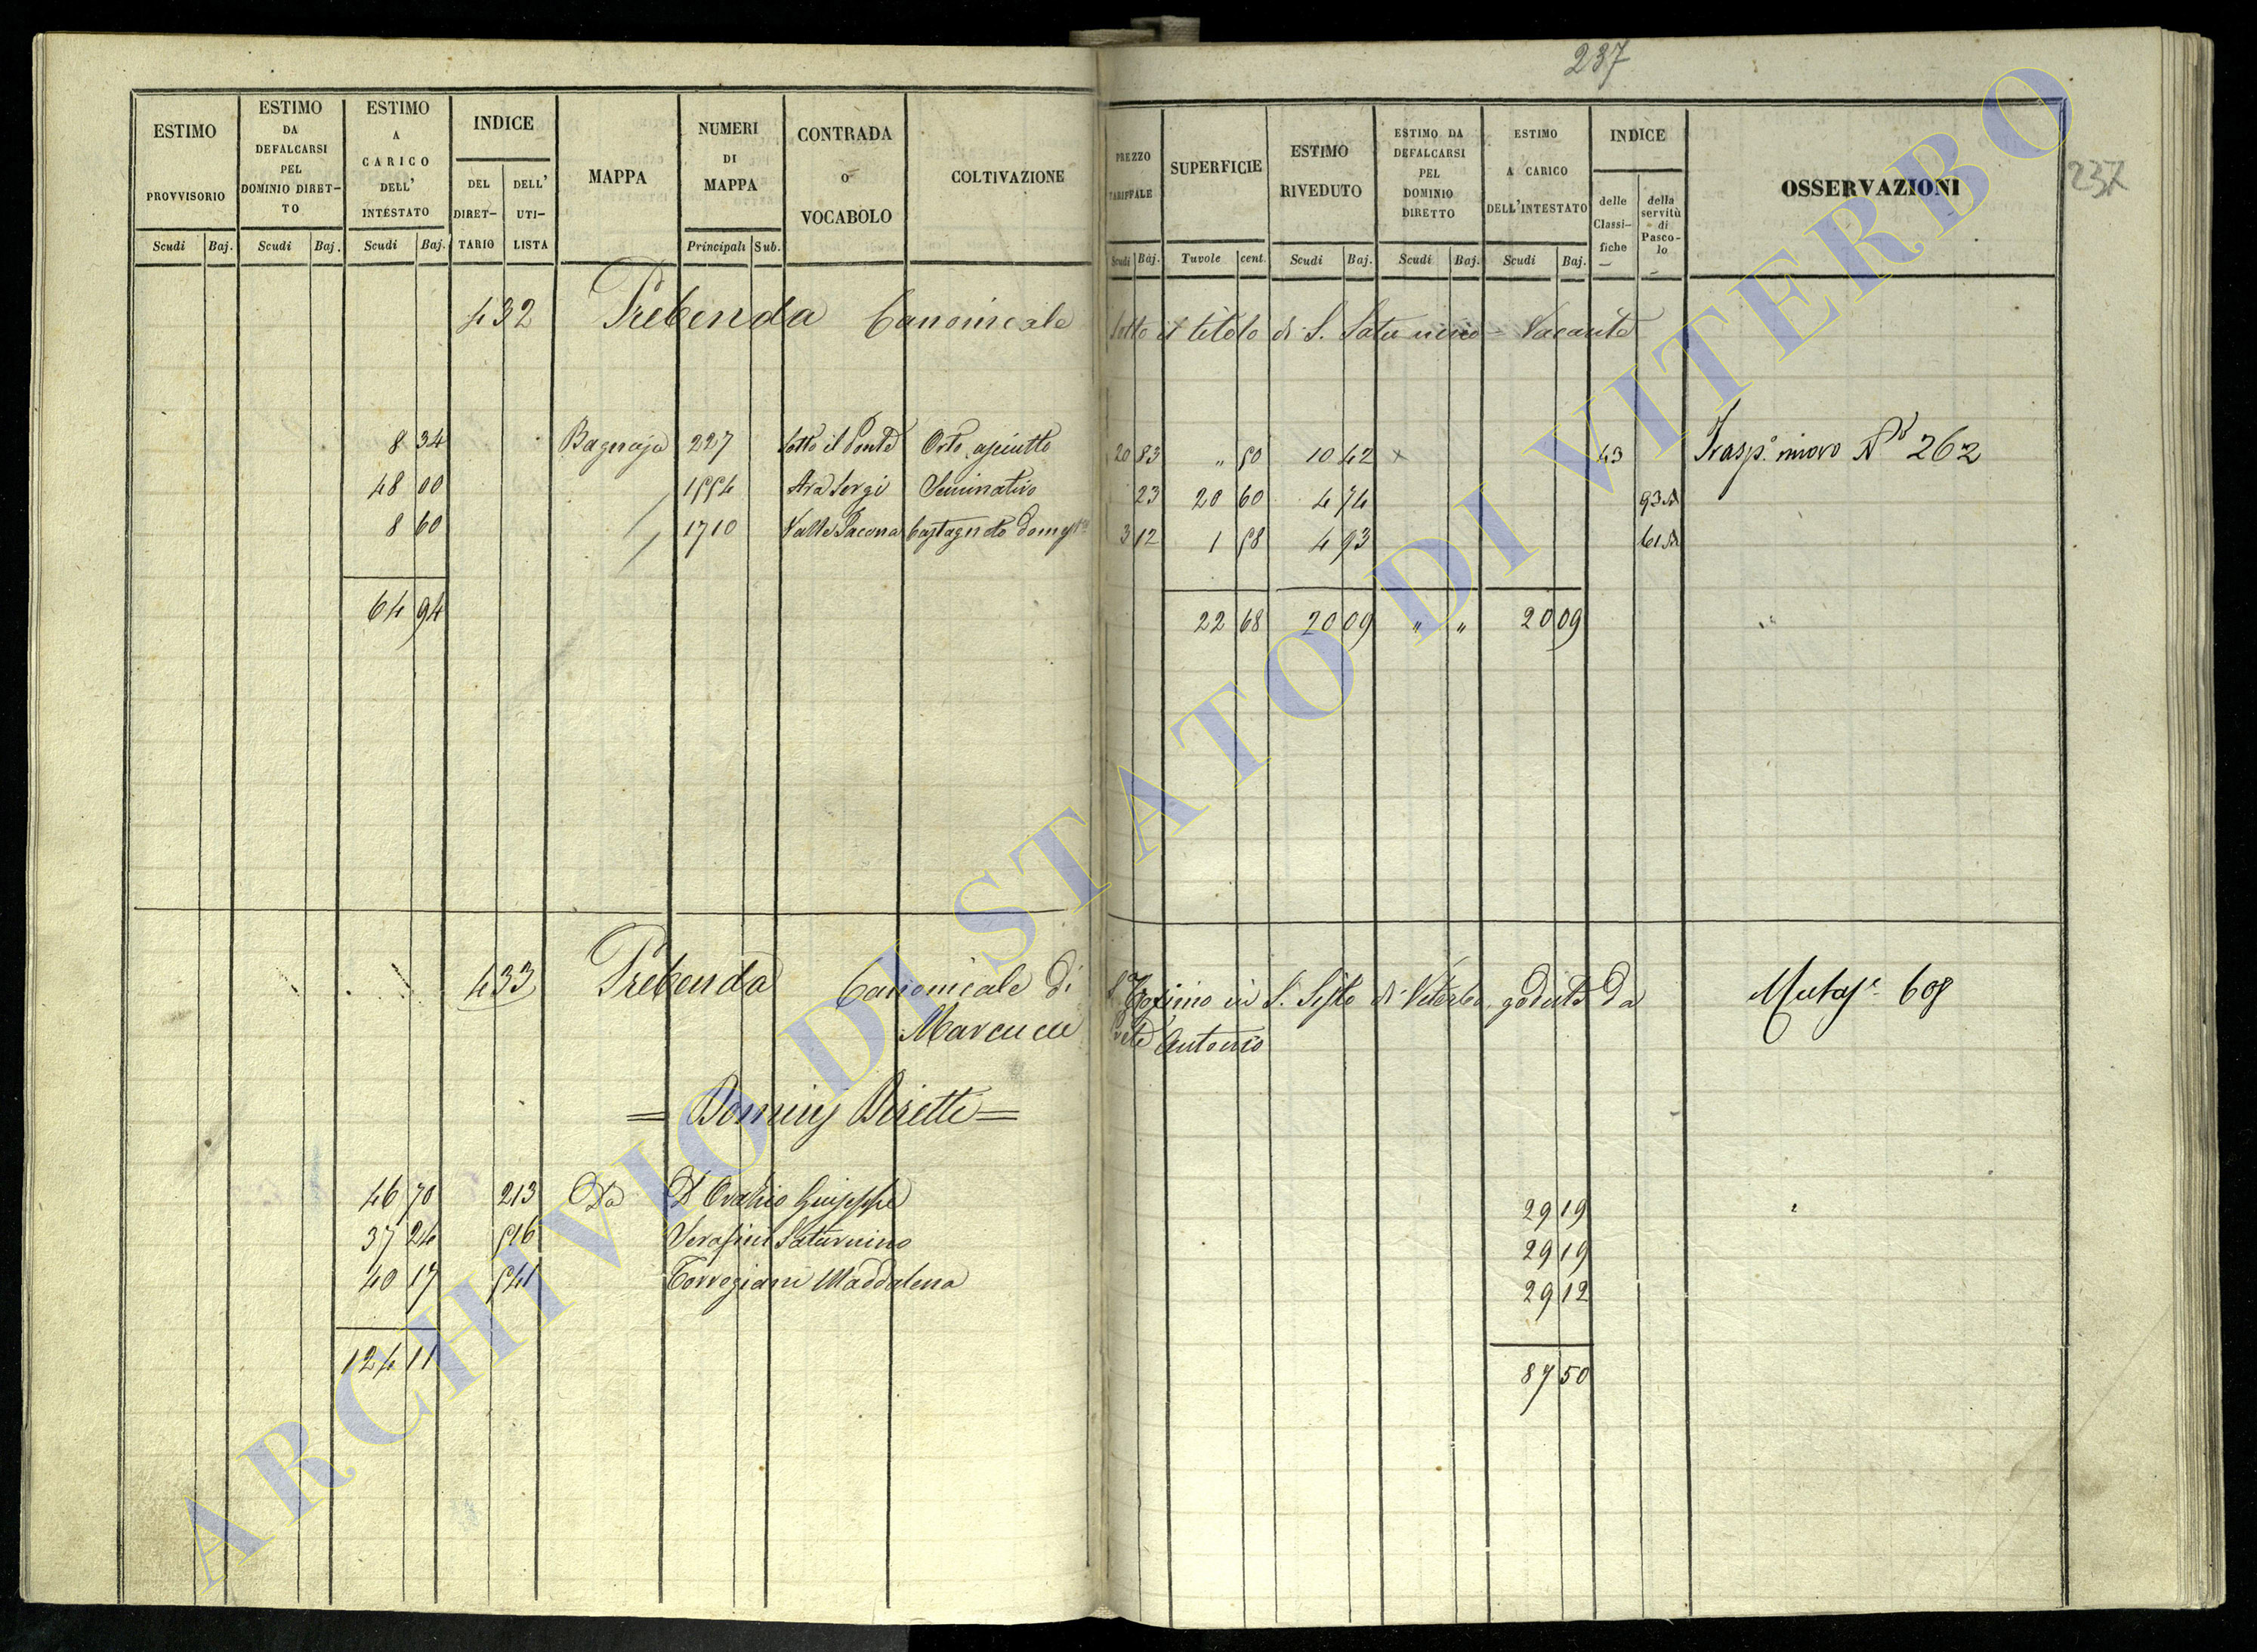 237
237
ESTIMO PROVVISORIO
ESTIMO DA DEFALCARSI PEL DOMINIO DIRET-TO
ESTIMO A CARICO DELL' INTESTATO
INDICE
DEL DIRET-TARIO
DELL' UTI-LISTA
MAPPA
NUMERI DI MAPPA
CONTRADA o VOCABOLO
COLTIVAZIONE
PREZZO TARIFFALE
SUPERFICIE
ESTIMO RIVEDUTO
ESTIMO DA DEFALCARSI PEL DOMINIO DIRETTO
ESTIMO A CARICO DELL'INTESTATO
INDICE
delle Classi-fiche
della servitù di Pasco-lo
OSSERVAZIONI
Scudi Baj. Scudi Baj. Scudi Baj. Principali Sub. Scudi Baj. Tavole cent. Scudi Baj. Scudi Baj. Scudi Baj.
432 Prebenda Canonicale sotto il titolo di S. Saturnino - Vacante
8 34 Bagnaja 227 Sotto il Ponte Orto asciutto 20 83 " 50 10 42 x 43 Trasp.o nuovo No 262
48 00 / 1554 Ara Sergi Seminativo 23 20 60 4 74 93
8 60 / 1710 Valle Castagneto 3 12 1 58 4 93 61
64 94 22 68 20 09 " " 20 09
433 Prebenda Canonicale di in S. Sisto di Viterbo goduta da Mutaze 608
Antonio
= Dominj Diretti =
46 70 213 Da D'Orazio Giuseppe 29 19
37 24 516 Serafini Saturnino 29 19
40 17 541 Torregiani Maddalena 29 12
124 11 87 50
ARCHIVIO DI STATO DI VITERBO